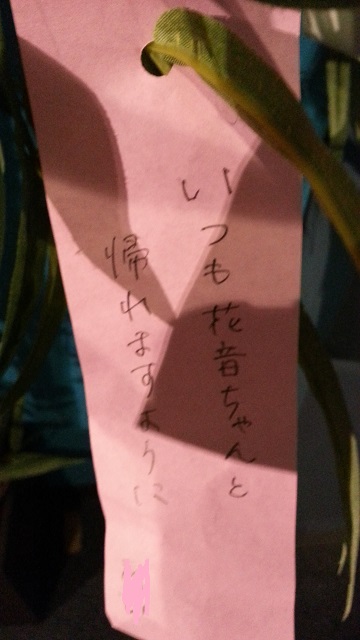 いつも花音ちゃんと
帰れますように